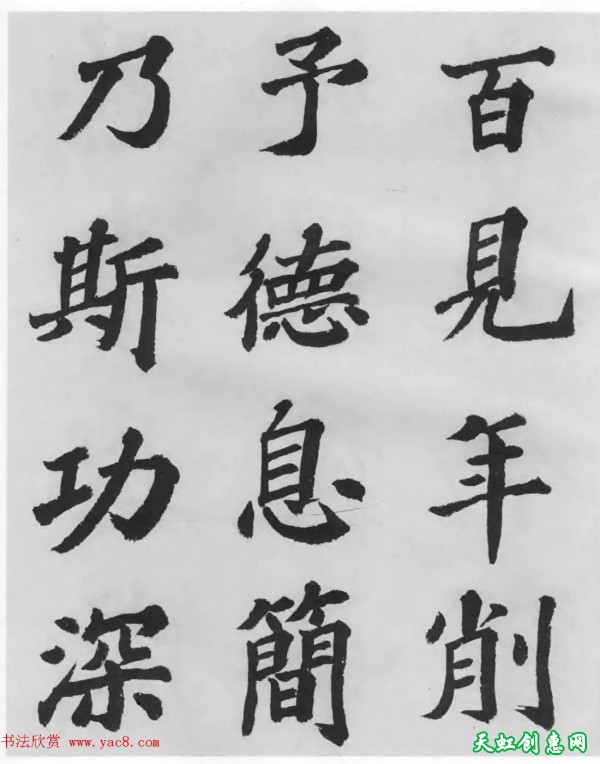 百見年削
予德息簡
乃斯功深
书法欣赏 www.yac8.com
天虹创意网